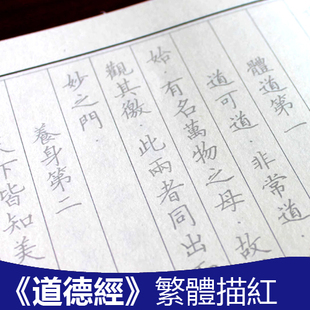 體道第一
道可道·非常道
始·有名萬物之母·故
觀其徼·此兩者同出
妙之門·
養身第二
下皆知美
《道德經》繁體描紅